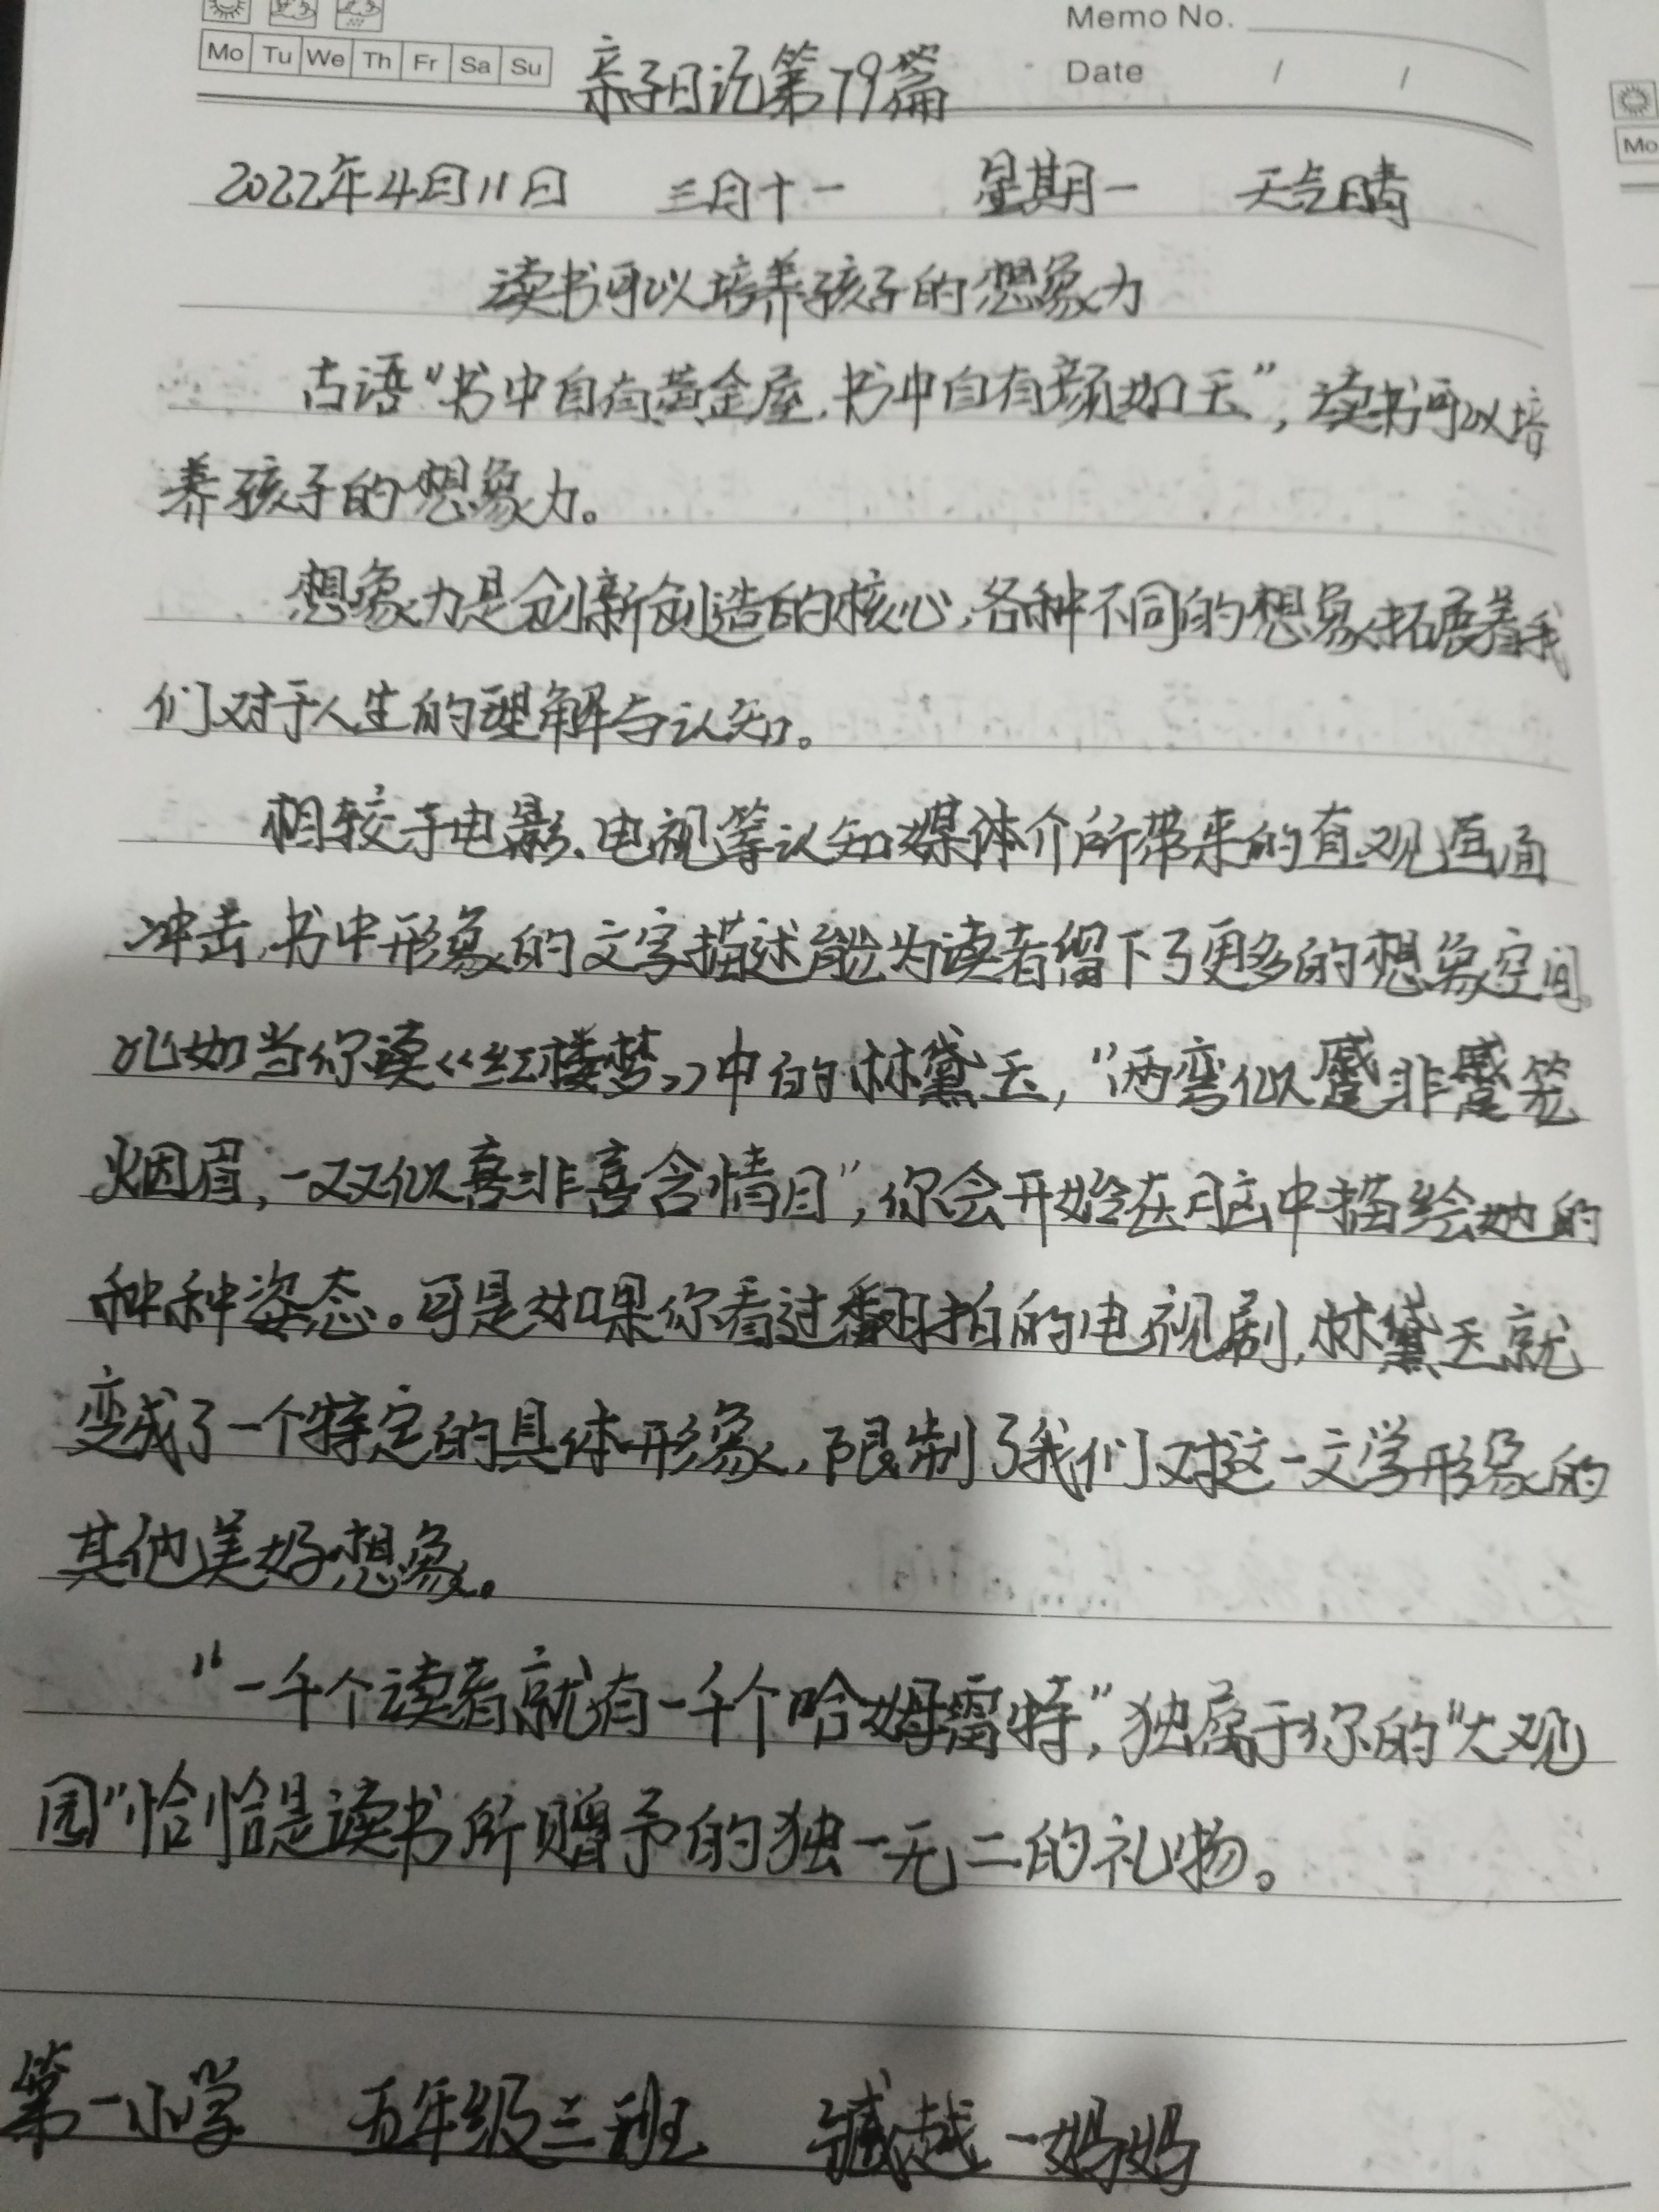 Memo No.
Mo Tu We Th Fr Sa Su
Date / /
亲子日记第79篇
Mo
2022年4月11日 三月十一 星期一 天气晴
读书可以培养孩子的想象力
古语“书中自有黄金屋,书中自有颜如玉”,读书可以培
养孩子的想象力。
想象力是创新创造的核心,各种不同的想象拓展着我
们对于人生的理解与认知。
相较于电影、电视等认知媒体介所带来的直观画面
冲击,书中形象的文字描述能为读者留下了更多的想象空间。
比如当你读《红楼梦》中的林黛玉,“两弯似蹙非蹙笼
烟眉,一双似喜非喜含情目”,你会开始在脑中描绘她的
种种姿态。可是如果你看过翻拍的电视剧,林黛玉就
变成了一个特定的具体形象,限制了我们对这一文学形象的
其他美好想象。
“一千个读者就有一千个哈姆雷特”,独属于你的“大观
园”恰恰是读书所赠予的独一无二的礼物。
第一小学 五年级三班 越一妈妈